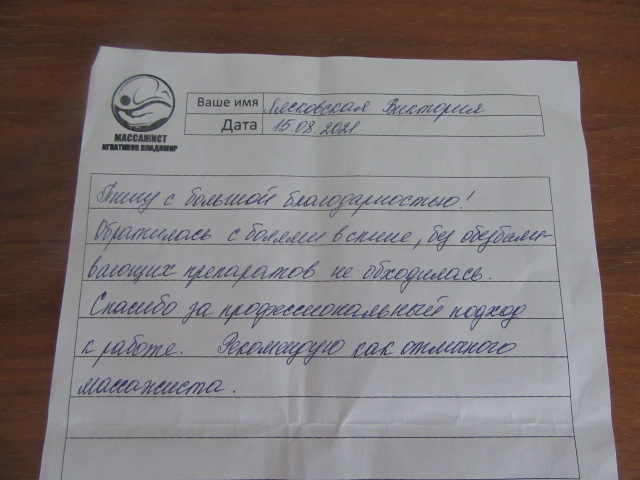 МАССАЖИСТ
ИГНАТИКОВ ВЛАДИМИР
Ваше имя Лясковская Виктория
Дата 15.08.2021
Пишу с большой благодарностью!
Обратилась с болями в спине, без обезбали-
вающих препаратов не обходилась.
Спасибо за профессиональный подход
к работе. Рекомендую как отличного
массажиста.